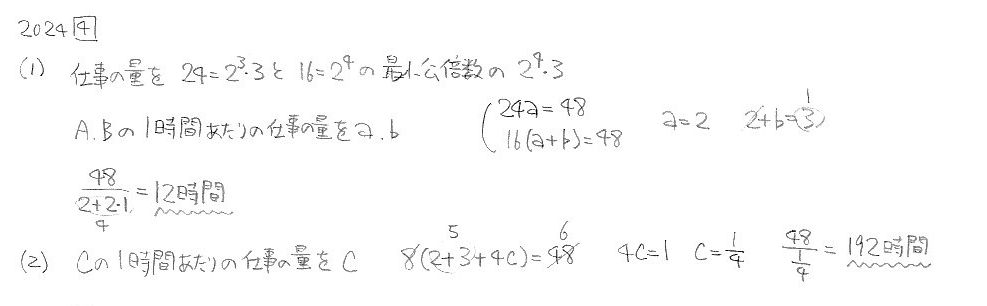 2024 4
(1) 仕事の量を 24=2³·3と 16=2⁴の 最小公倍数の 2⁴·3
A.Bの1時間あたりの仕事の量をa.b { 24a=48 a=2 2+b=3 1
16(a+b)=48
48/(2+2·1) = 12時間
4
(2) Cの1時間あたりの仕事の量をC 8(2+3+4C)=48 5 6 4C=1 C=1/4 48/(1/4) = 192時間